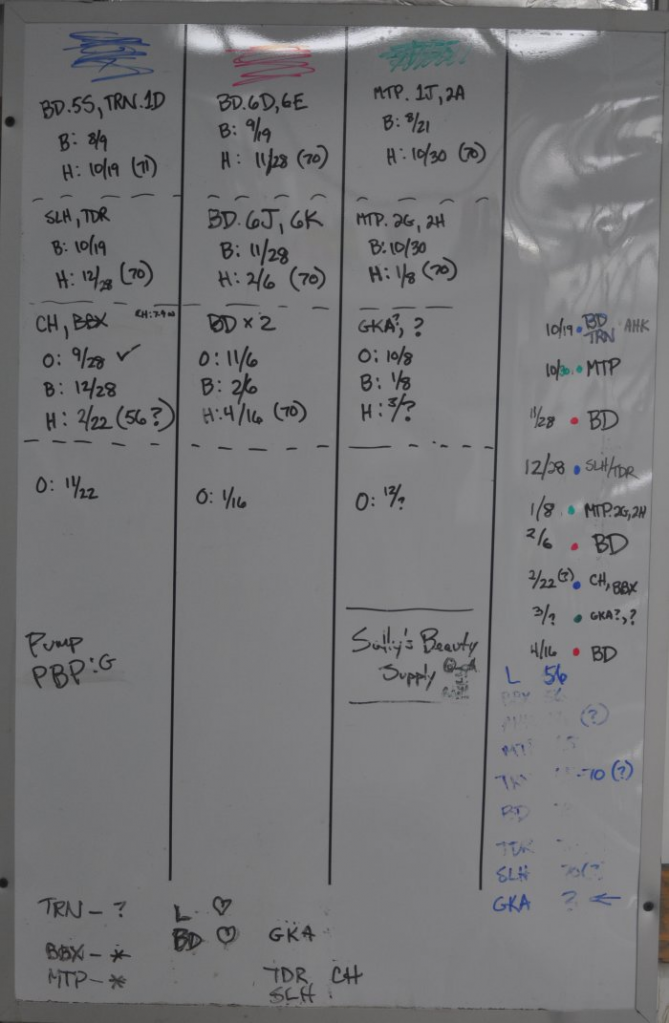 BD.5S, TRN.1D
B: 8/9
H: 10/19 (71)
SLH, TDR
B: 10/19
H: 12/28 (70)
CH, BBX
O: 9/28 ✓
B: 12/28
H: 2/22 (56?)
O: 11/22
Pump
PBP:G
BD.6D, 6E
B: 9/19
H: 11/28 (70)
BD. 6J, 6K
B: 11/28
H: 2/6 (70)
BD x 2
O: 11/6
B: 2/6
H: 4/16 (70)
O: 1/16
MTP. 1J, 2A
B: 8/21
H: 10/30 (70)
MTP. 2G, 2H
B: 10/30
H: 1/8 (70)
GKA?, ?
O: 10/8
B: 1/8
H: 3/?
O: 12/?
Sally's Beauty
Supply
10/19 • BD TRN AHK
10/30 • MTP
11/28 • BD
12/28 • SLH/TDR
1/8 • MTP.2G, 2H
2/6 • BD
2/22 (?) • CH, BBX
3/? • GKA?, ?
4/16 • BD
L 56
BBX 56
(?)
MT
70 (?)
BD
TDR
SLH
GKA ? ←
TRN – ?
BBX – *
MTP – *
L ♡
BD ♡
GKA
TDR CH
SLH